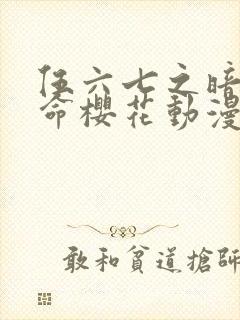 伍六七之暗
命櫻花動漫
敢和貧道搶師